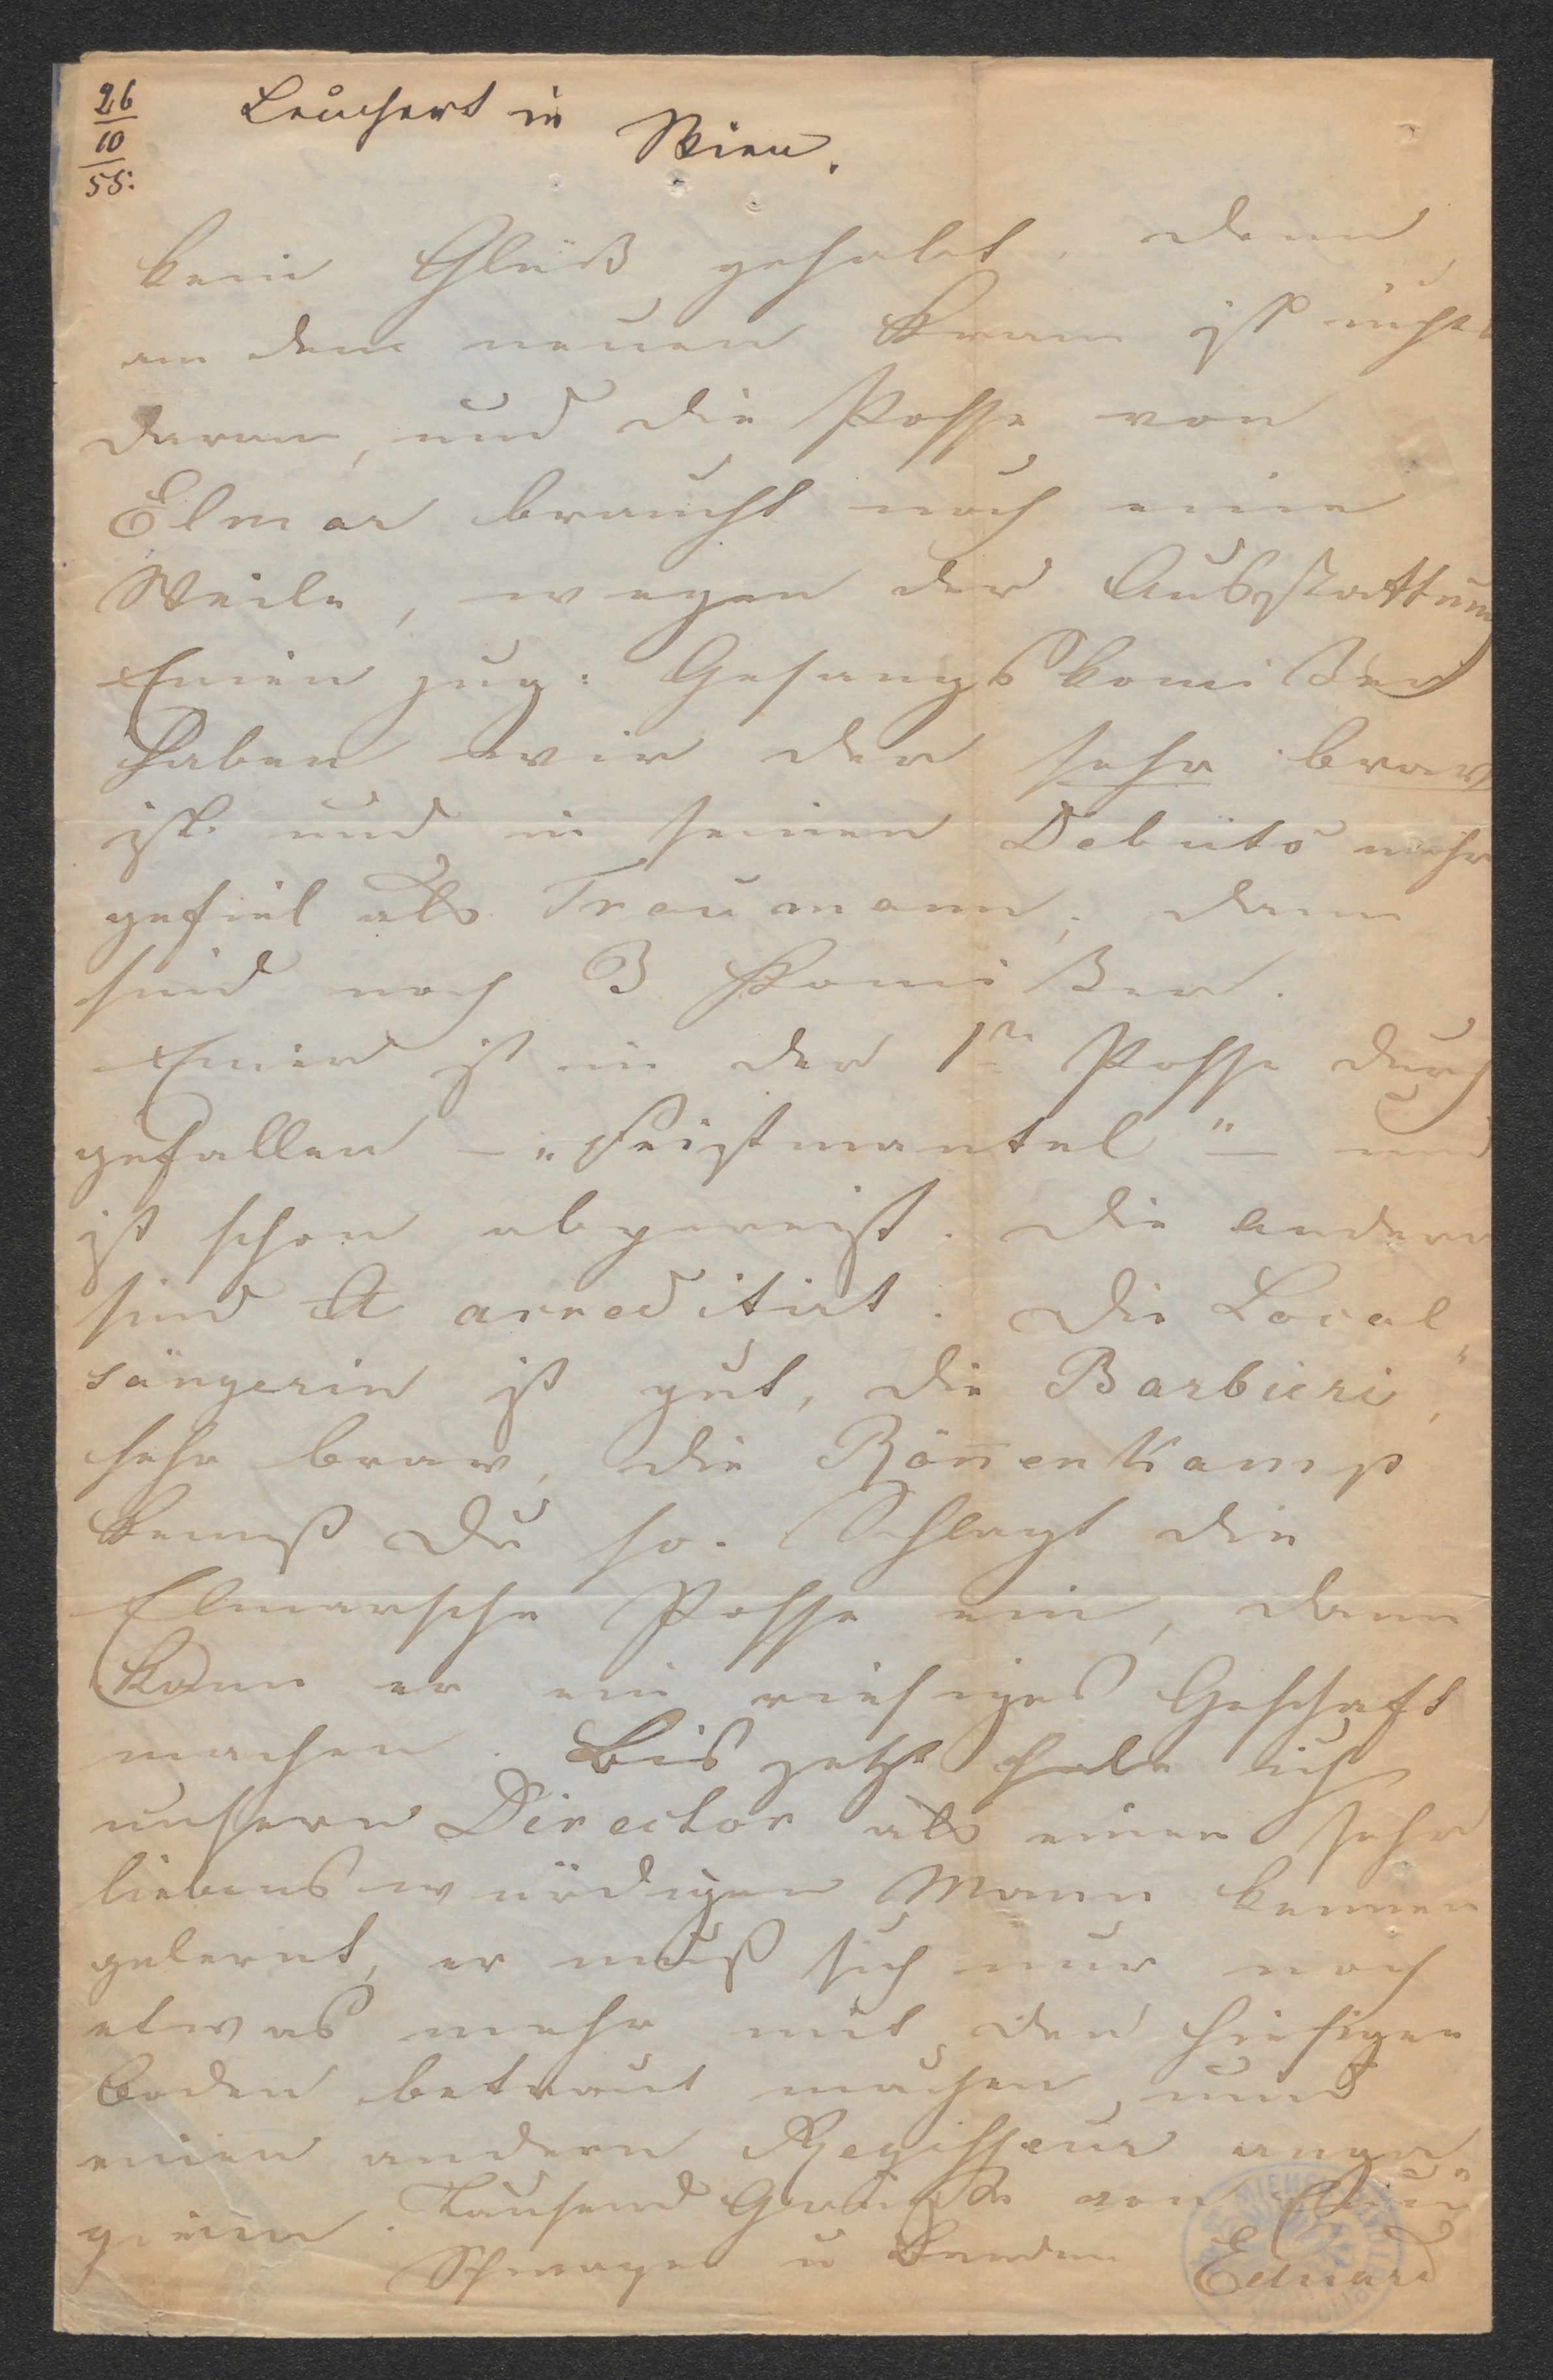 26
10
55.
Leuchert in Wien.
kein Glück gehabt, denn
an dem neuen Kram ist nichts
daran, und die Posse von
Elmar braucht noch eine
Weile, wegen der Ausstattung
Einen zug: Gesangskomiker
haben wir der sehr brav
ist und in seinen Debüts mehr
gefiel als Treumann, dann
sind noch 3 Komiker.
Einer ist in der 1n Posse durch
gefallen – „Feistmantel" – und
ist schon abgereist. Die andern
sind accreditirt. Die Local
sängerin ist gut, die Barbieri,
sehr brav, die Rönnenkamp
kennst Du ja. Schlagt die
Elmarsche Posse ein, dann
kann er ein riesiges Geschäft
machen. Bis jetzt habe ich
unsern Director als einen sehr
liebenswürdigen Mann kennen
gelernt, er muß sich nur noch
etwas mehr mit den hiesigen
Boden betraut machen, und
einen andern Regisseur enga
giren. Tausend Grüße von
Schwager u Bruder Eduard